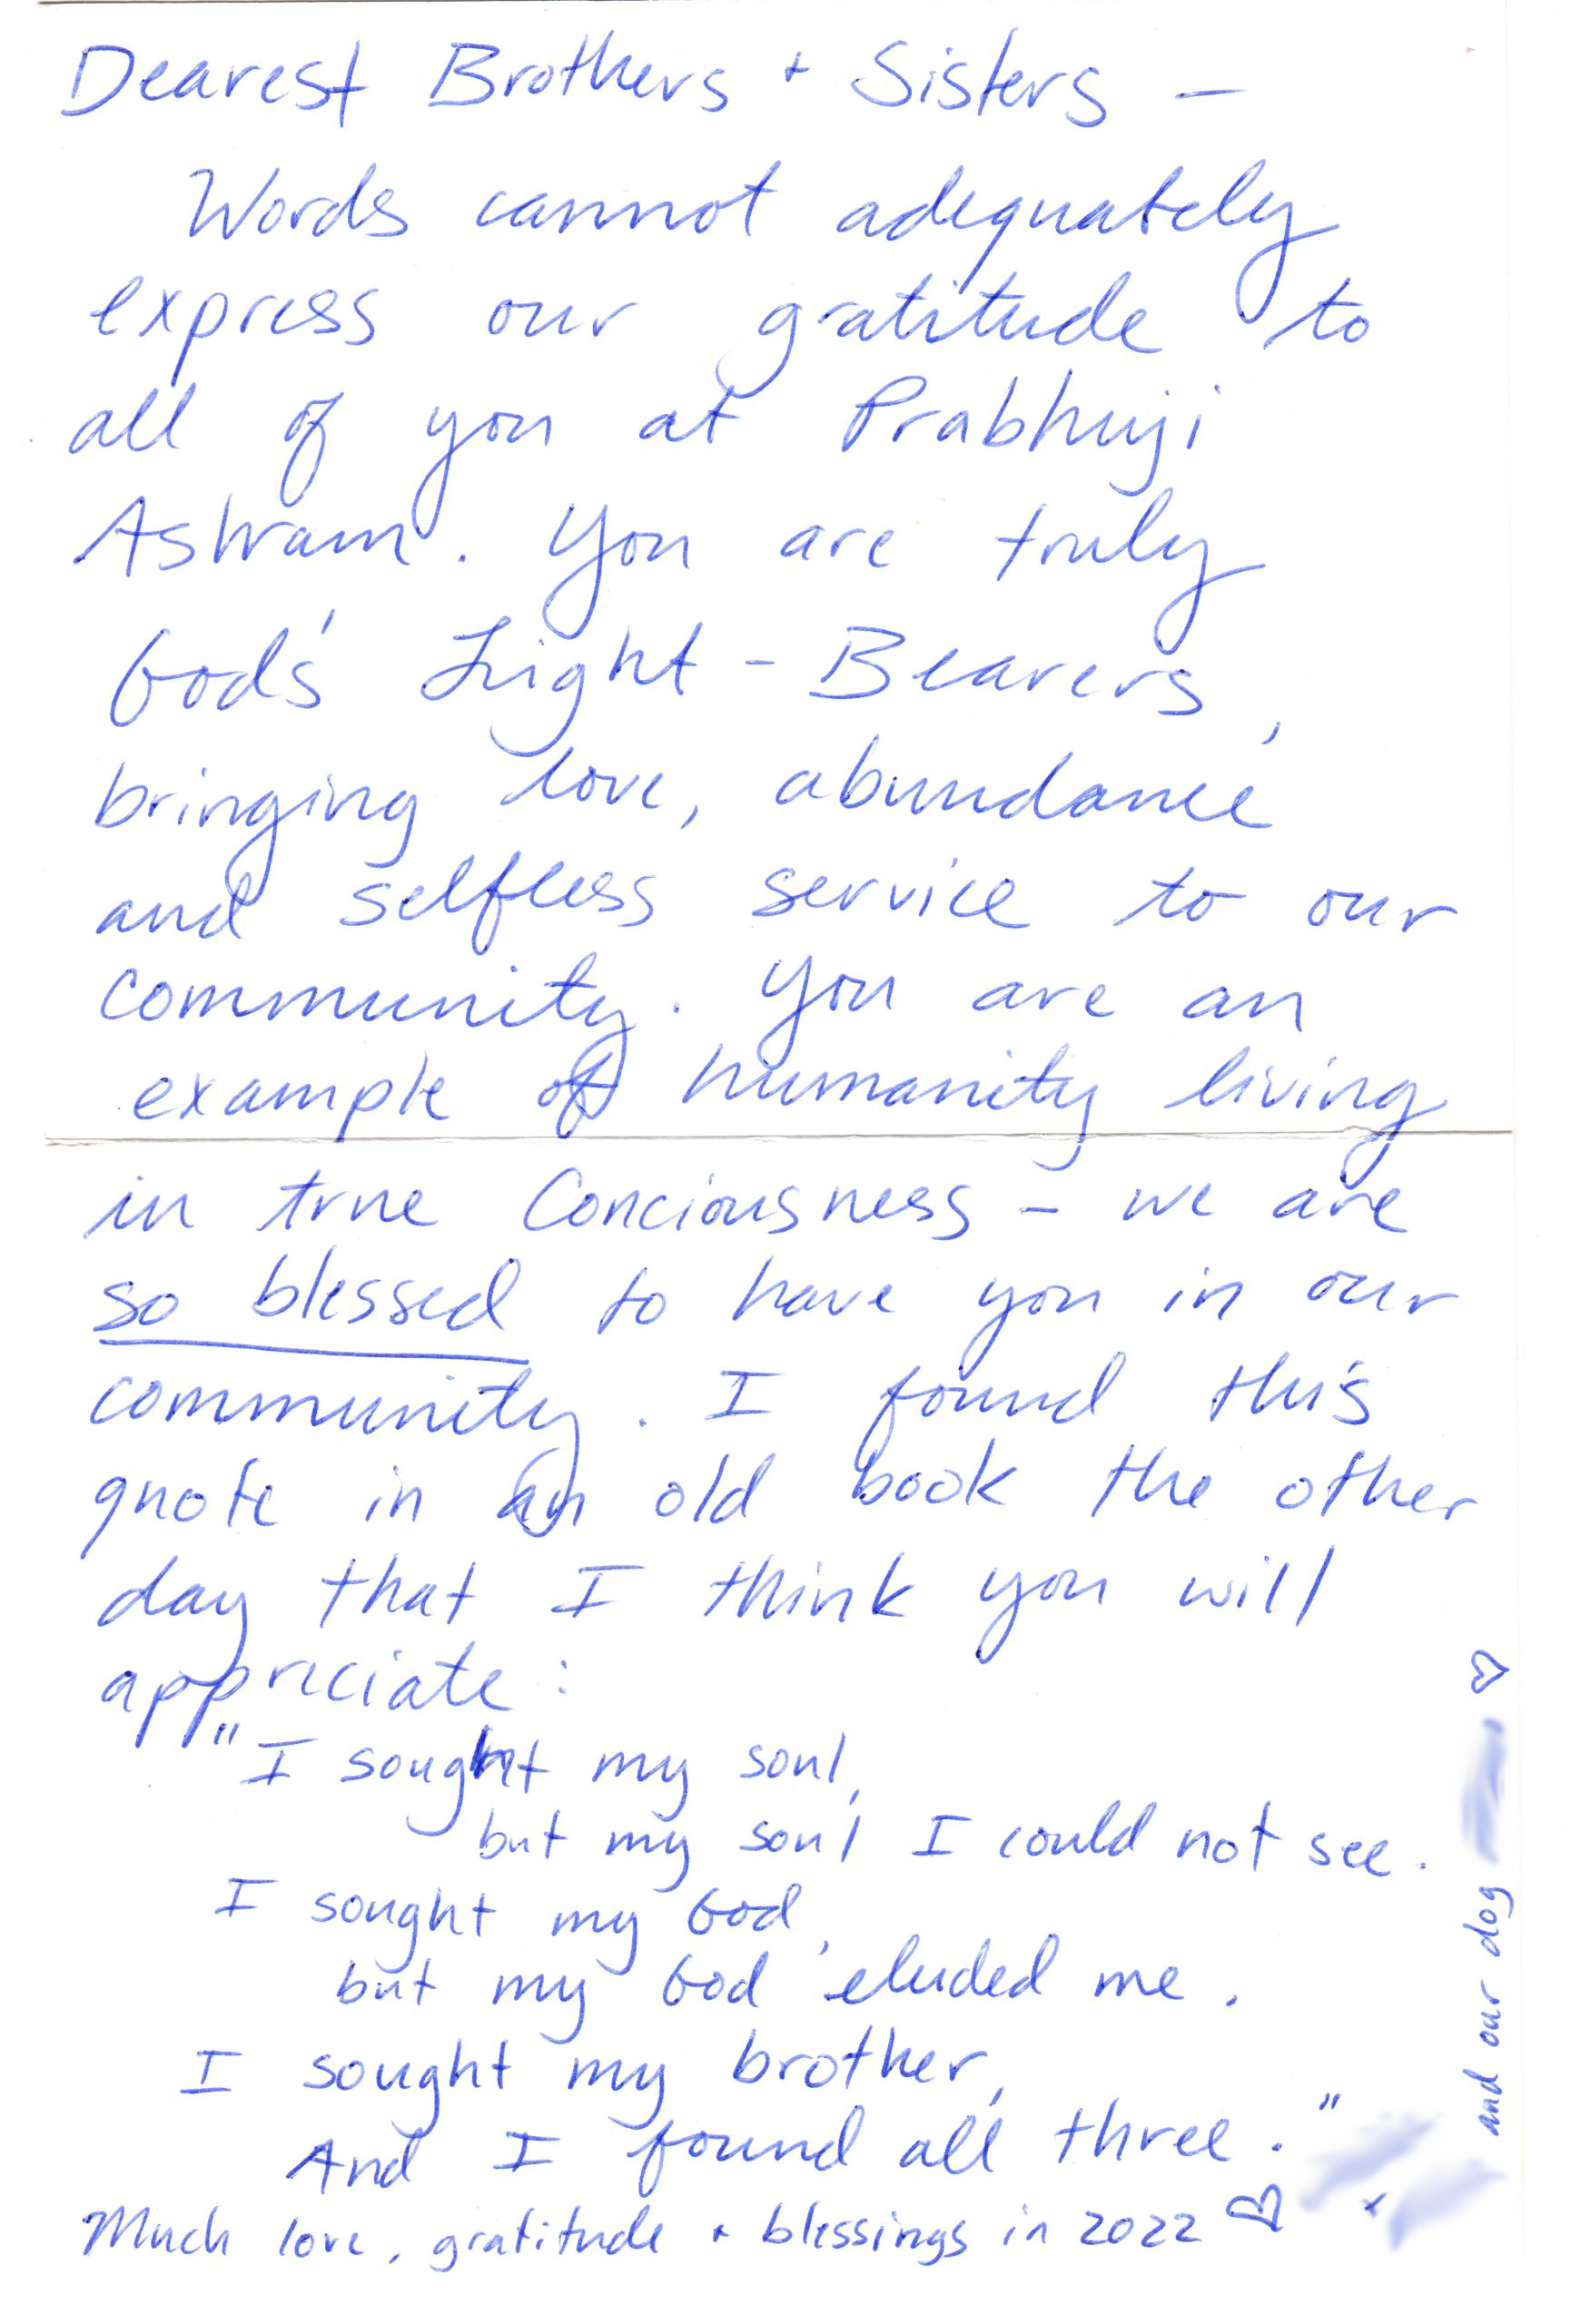 Dearest Brothers + Sisters –
Words cannot adequately
express our gratitude to
all of you at Prabhuji
Ashram. You are truly
God's Light - Bearers,
bringing love, abundance
and selfless service to our
community. You are an
example of humanity living
in true Conciousness – we are
so blessed to have you in our
community. I found this
quote in an old book the other
day that I think you will
appreciate:
"I sought my soul,
but my soul I could not see.
I sought my God,
but my God eluded me.
I sought my brother,
And I found all three."
Much love, gratitude + blessings in 2022 ♡
+
and our dog ♡